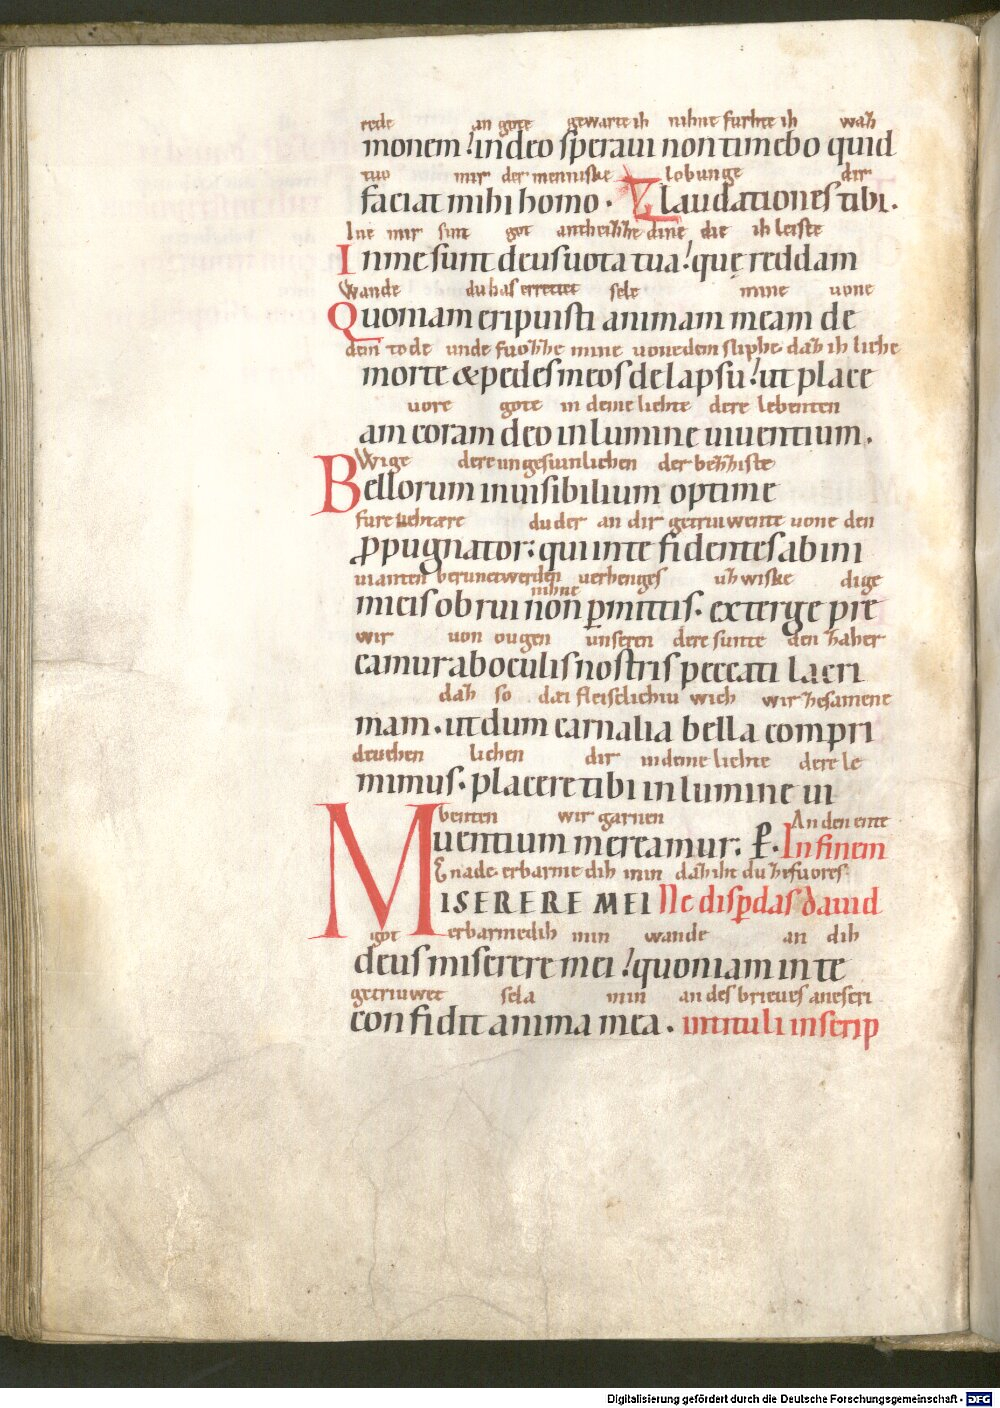 rede an gote gewarte ih nihne furhte ih waȥ
monem ! in deo speraui non timebo quid
tuo mir der menniske lobunge dir
faciat mihi homo . laudationes tibi .
Ine mir sint got antheiȥȥe dine die ih leiste
In me sunt deus uota tua ! que reddam
Wande du has errettet sele mine uone
Quoniam eripuisti animam meam de
dem tode unde fuoȥȥe mine uone dem sliphe daȥ ih liche
morte & pedes meos de lapsu ! ut place
uore gote in deme liehte dere lebenten
am coram deo in lumine uiuentium .
Wige dere ungesuinlichen der beȥȥiste
Bellorum inuisibilium optime
fure uehtære du der an dir getriuwente uone den
ꝓpugnator : qui in te fidentes ab ini
uianten berunetwerden uerhenges uȥ wiske dige
nihne
micis obrui non ꝑmittis . exterge pre
wir uon ougen unseren dere sunte den ȥaher
camur ab oculis nostris peccati lacri
daȥ so dei fleisclichiu wich wir ȥesamene
mam . ut dum carnalia bella compri
deuchen lichen dir in deme liehte dere le
mimus . placere tibi in lumine ui
benten wir garnen An den ente
uentium mereamur : P . In finem
Gnade erbarme dih min daȥ iht du ȥefuores
MISERERE MEI Ne disꝑdas dauid
got erbarme dih min wande an dih
deus miserere mei ! quoniam in te
getriuwet sela min an des brieues anescri
confidit anima mea . in tituli inscrip
Digitalisierung gefördert durch die Deutsche Forschungsgemeinschaft - DFG